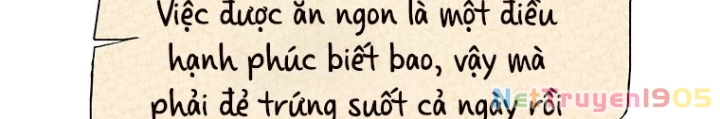 Việc được ăn ngon là một điều
hạnh phúc biết bao, vậy mà
phải đẻ trứng suốt cả ngày rồi
NetTruyen1905